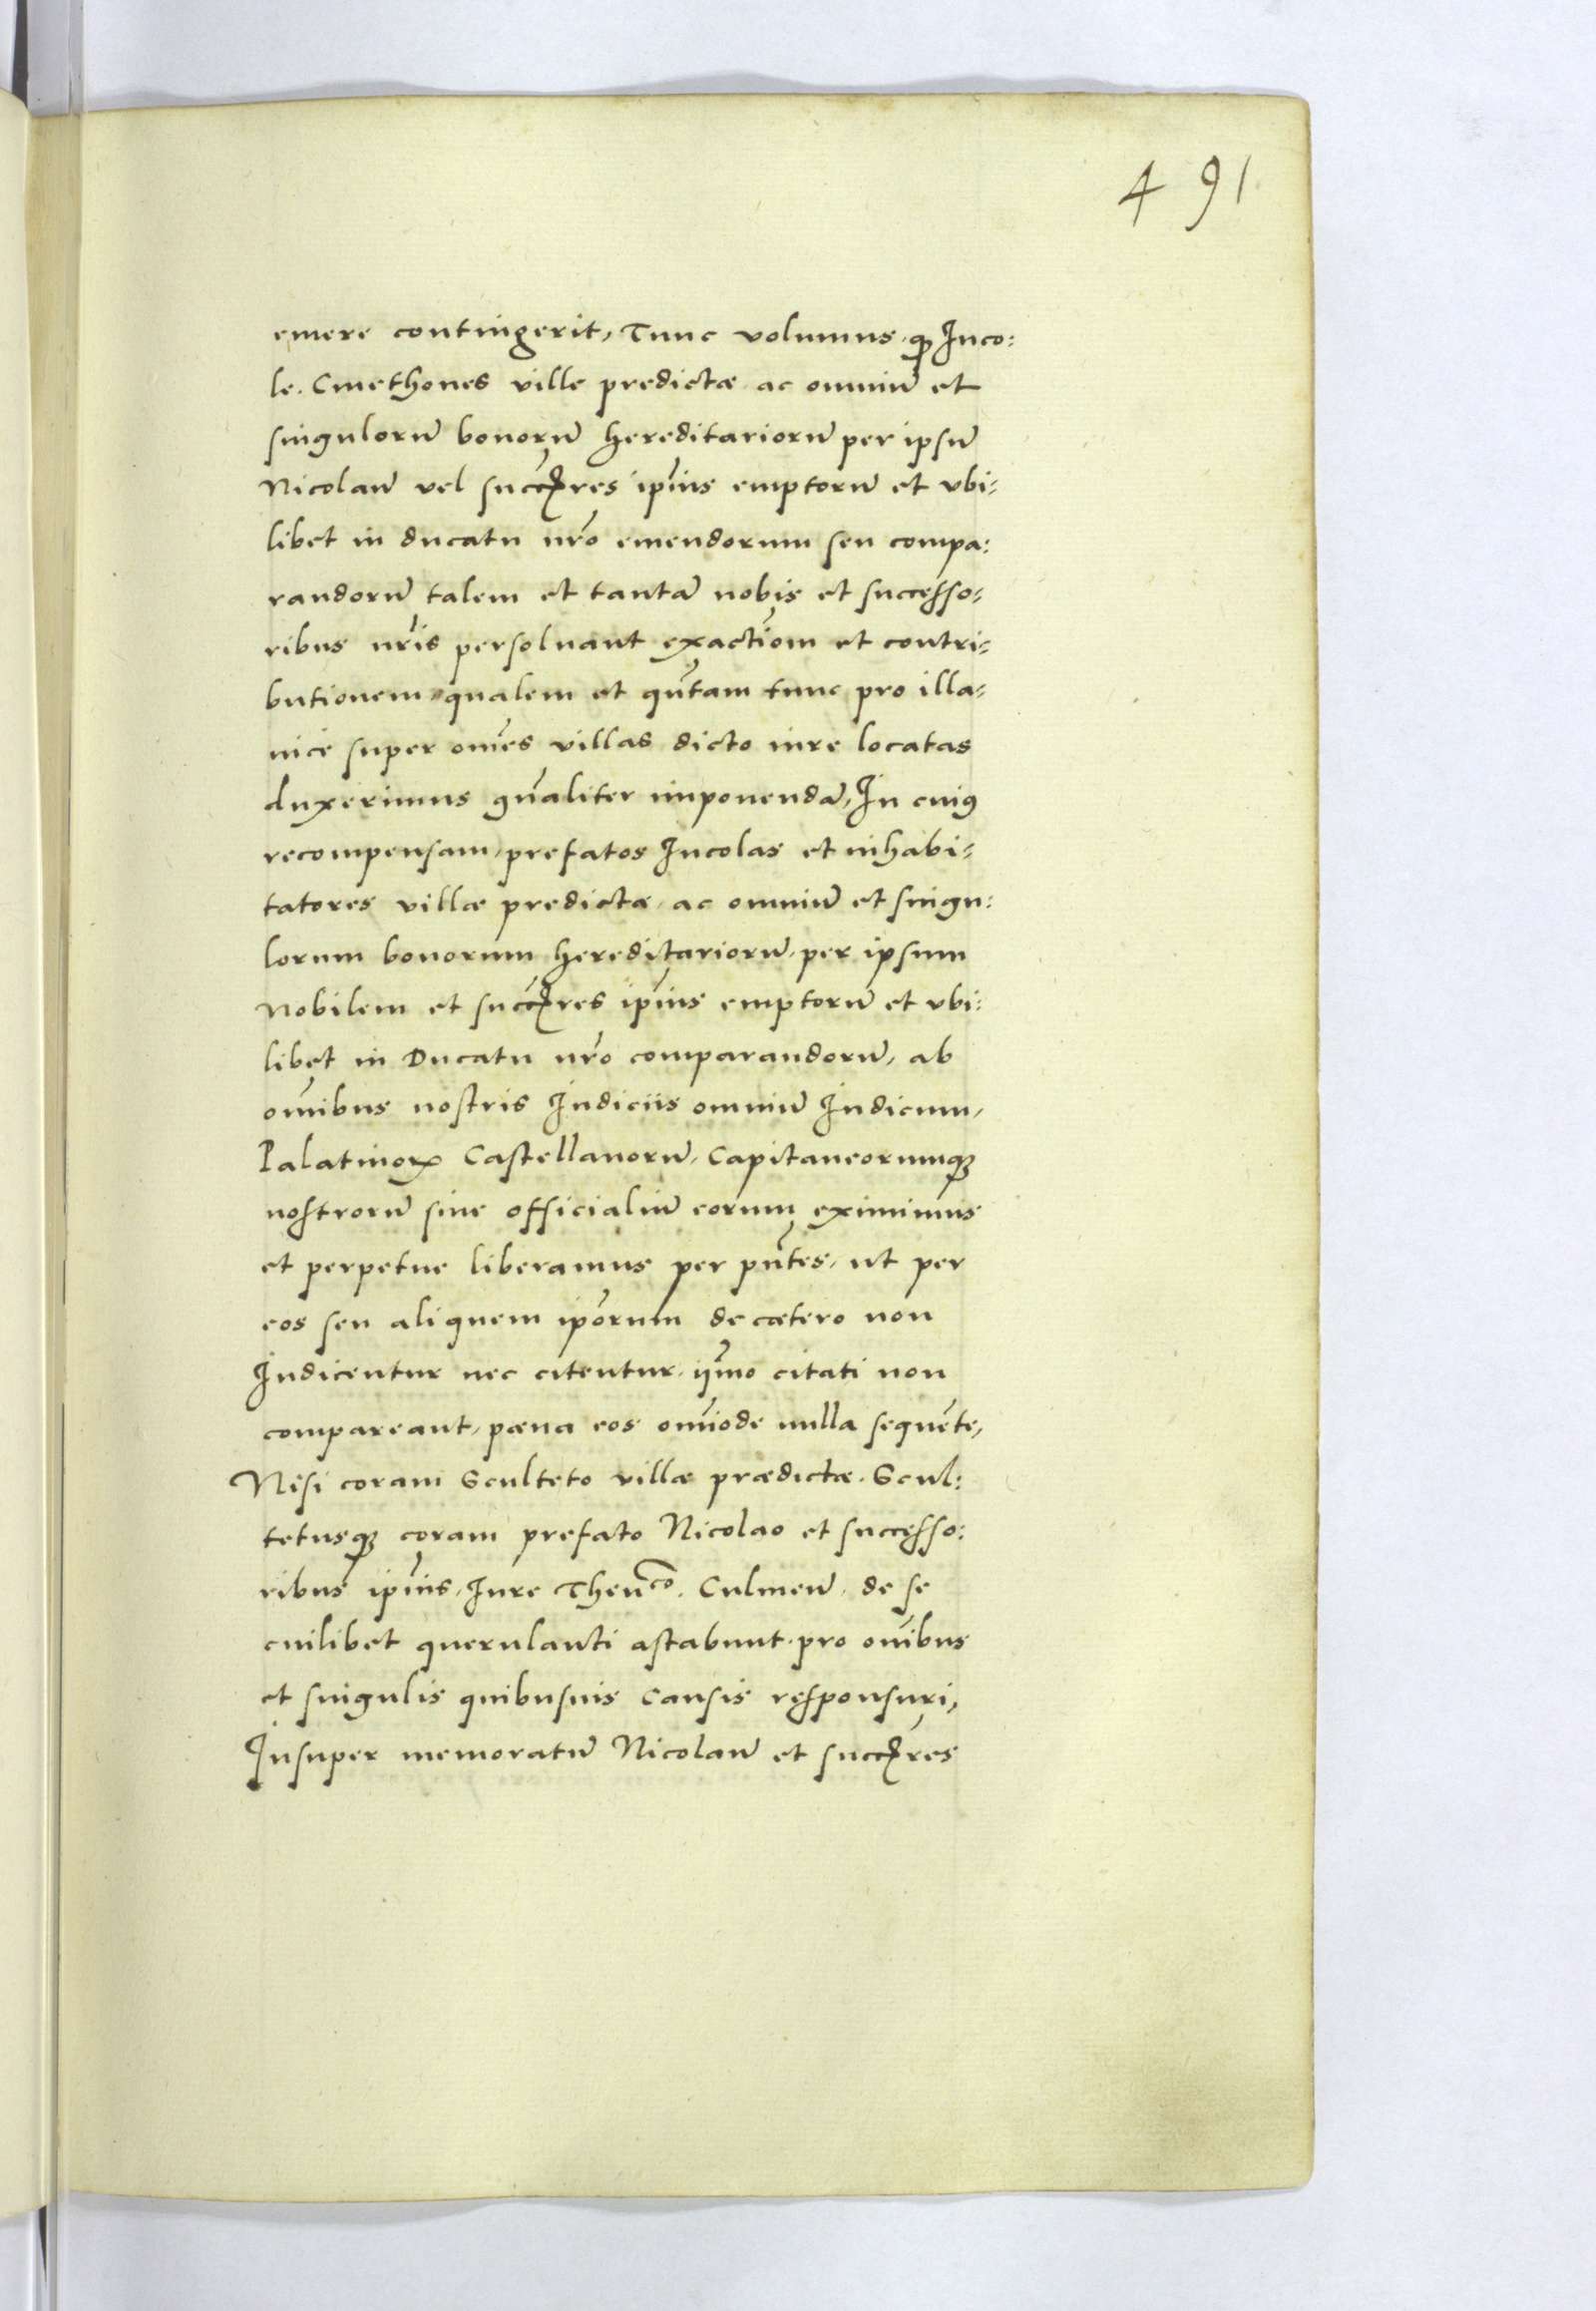 491
emere contingerit, Tunc volumus, qꝫ Inco:
le. Cmethones ville predictæ ac omniū et
singulorū bonorū hereditariorū per ipsū
Nicolaū vel succ̄res ip̄ius emptorū et vbi:
libet in ducatu nr̄o emendorum seu compa:
randorū talem et tantā nobis et successo:
ribus nr̄is persoluant exactiōm et contri:
butionem, qualem et qūtam tunc pro illa:
uice super om̄es villas dicto iure locatas
duxerimus gn̄aliter imponendā, In cuiꝯ
recompensam, prefatos Incolas et inhabi:
tatores villæ predictæ, ac omniū et singu:
lorum bonorum hereditariorū, per ipsum
Nobilem et succ̄res ip̄ius emptorū et vbi:
libet in Ducatu nr̄o comparandorū, ab
om̄ibus nostris Iudiciis omniū Iudicum,
Palatinoꝝ Castellanorū, Capitaneorumqꝫ
nostrorū siue officialiū eorum eximimus
et perpetue liberamus per pn̄tes, ut per
eos seu aliquem ip̄orum de cætero non
Iudicentur nec citentur, ijmo citati non
compareant, pæna eos om̄iode nulla sequēte,
Nisi coram Sculteto villæ prædictæ. Scul:
tetusqꝫ coram prefato Nicolao et successo:
ribus ip̄ius, Iure Theuco. Culmeū, de se
cuilibet querulanti astabunt, pro om̄ibus
et singulis quibusuis causis responsuri,
Insuper memoratū Nicolaū et succ̄res